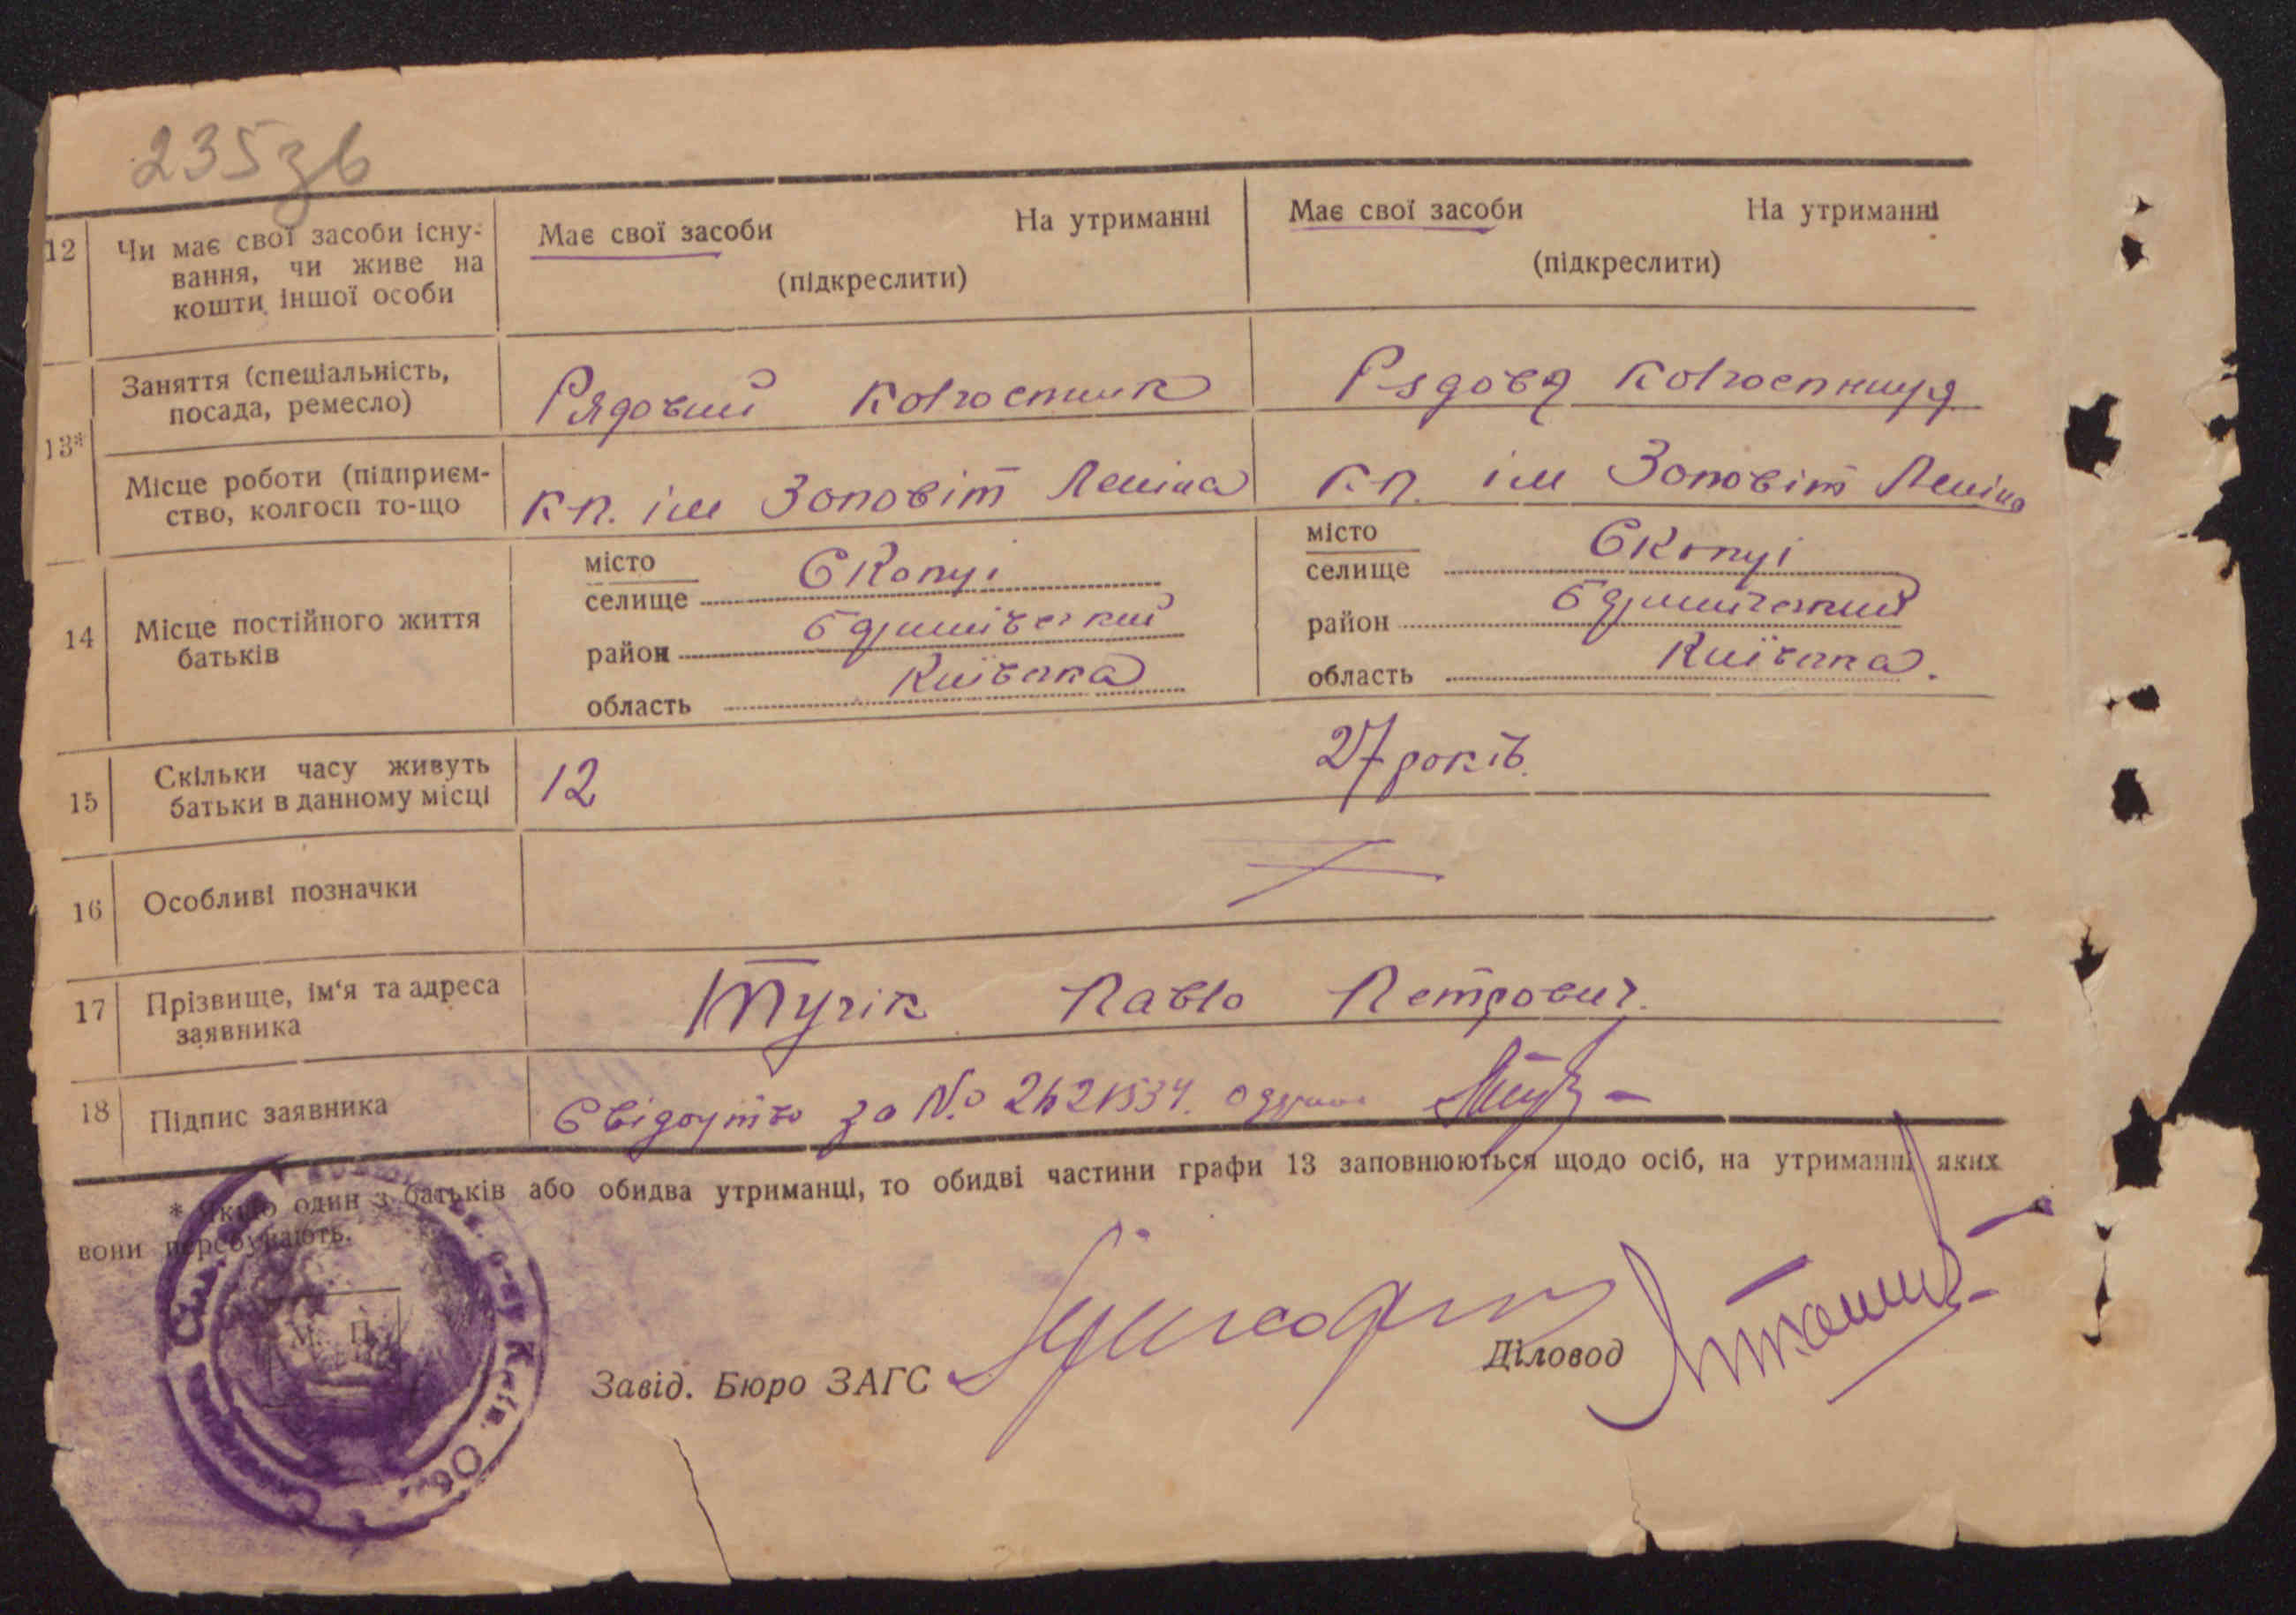 235зв
12 Чи має свої засоби існу-
вання, чи живе на
кошти іншої особи
Має свої засоби На утриманні
(підкреслити)
Має свої засоби На утриманні
(підкреслити)
13*
Заняття (спеціальність,
посада, ремесло)
Рядовий Колгоспник
Рядова Колгоспниця
Місце роботи (підприєм-
ство, колгосп то-що
кл. ім Зоповіт Леніна
кл. ім Зоповіт Леніна
14 Місце постійного життя
батьків
місто
селище Скопці
район
область Київска
місто
селище Скопці
район
область Київска.
15 Скільки часу живуть
батьки в данному місці
12
27 років.
16 Особливі позначки
17 Прізвище, ім‘я та адреса
заявника
Павло Петрович.
18 Підпис заявника
Свідоцтво за №
* Якщо один з батьків або обидва утриманці, то обидві частини графи 13 заповнюються щодо осіб, на утриманні яких
вони перебувають.
М. П.
Київ. Обл.
Завід. Бюро ЗАГС
Діловод